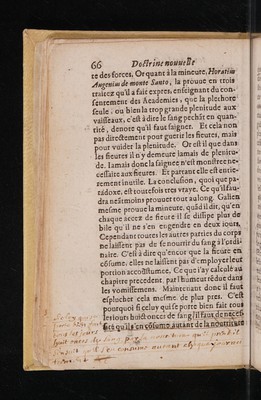 66 Doctrine nouvelle
te des forces. Or quant à la mineure, Horatius
Augenius de monte Santo, la prouue en trois
traitez qu'il a fait expres, enseignant du con-
sentement des Academies, que la plethore
seule, ou bien la trop grande plenitude aux
vaisseaux, c'est à dire le sang pechãt en quan-
tité, denote qu'il faut saigner. Et cela non
pas directement pour guerir les fieures, mais
pour vuider la plenitude. Or est il que dans
les fieures il n'y demeure iamais de plenitu-
de. Iamais donc la saignee n'est monstree ne-
cessaire aux fieures. Et partant elle est entie-
rement inutile. La conclusion, quoi que pa-
radoxe, est toutefois tres vraye. Ce qu'il fau-
dra neãtmoins prouuer tout au long. Galien
mesme prouue la mineure, quãd il dit, qu'en
chaque accez de fieure il se dissipe plus de
bile qu'il ne s'en engendre en deux iours.
Cependant toutes les autres parties du corps
ne laissent pas de se nourrir du sang à l'ordi-
naire. C'est à dire qu'encor que la fieure en
cõsume, elles ne laissent pas d'employer leur
portion accoustumee. Ce que i'ay calculé au
chapitre precedent, par l'humeur rêdue dans
les vomissemens. Maintenant donc il faut
esplucher cela mesme de plus pres. C'est
pourquoi si celuy qui se porte bien fait tous
les iours huict onces de sang, il faut de neces-
sité qu'il s'en cõsume autant de la nourriture